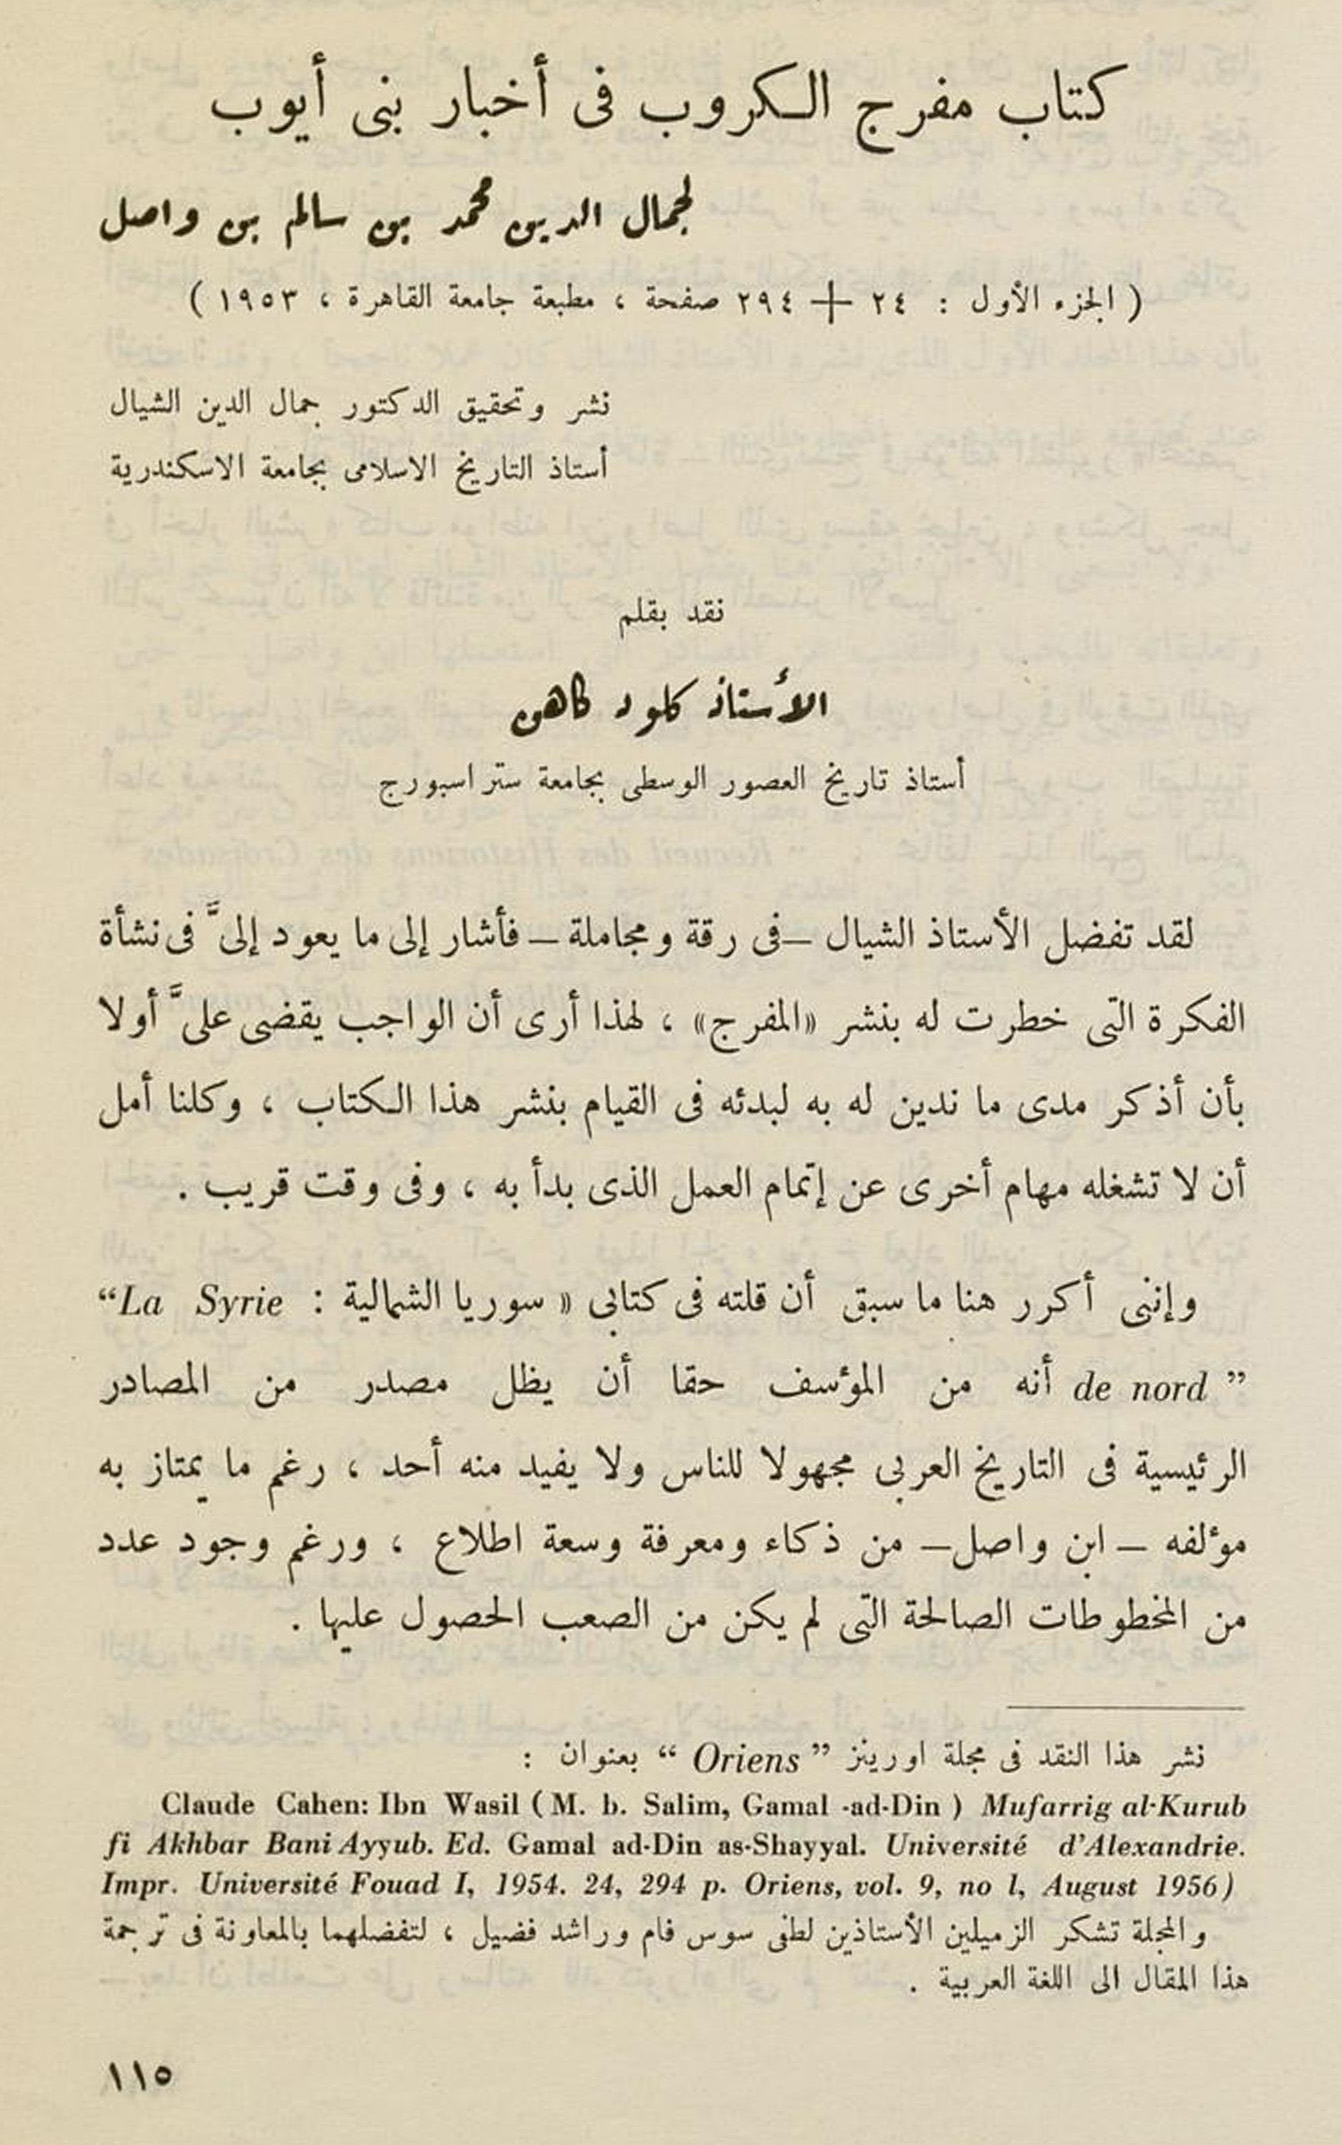 كتاب مفرج الكروب فى أخبار بنى أيوب
لجمال الدين محمد بن سالم بن واصل
( الجزء الأول : ٢٤ + ٢٩٤ صفحة ، مطبعة جامعة القاهرة ، ١٩٥٣ )
نشر وتحقيق الدكتور جمال الدين الشيال
أستاذ التاريخ الاسلامى بجامعة الاسكندرية
نقد بقلم
الأستاذ كلود كاهن
أستاذ تاريخ العصور الوسطى بجامعة ستراسبورج
لقد تفضل الأستاذ الشيال – فى رقة ومجاملة – فأشار إلى ما يعود إلىَّ فى نشأة
الفكرة التى خطرت له بنشر «المفرج» ، لهذا أرى أن الواجب يقضى علىَّ أولا
بأن أذكر مدى ما ندين له به لبدئه فى القيام بنشر هذا الكتاب ، وكلنا أمل
أن لا تشغله مهام أخرى عن إتمام العمل الذى بدأ به ، وفى وقت قريب .
وإننى أكرر هنا ما سبق أن قلته فى كتابى « سوريا الشمالية : “La Syrie
de nord ” أنه من المؤسف حقا أن يظل مصدر من المصادر
الرئيسية فى التاريخ العربى مجهولا للناس ولا يفيد منه أحد ، رغم ما يمتاز به
مؤلفه – ابن واصل – من ذكاء ومعرفة وسعة اطلاع ، ورغم وجود عدد
من المخطوطات الصالحة التى لم يكن من الصعب الحصول عليها .
نشر هذا النقد فى مجلة اورينز “ Oriens ” بعنوان :
Claude Cahen: Ibn Wasil ( M. b. Salim, Gamal -ad-Din ) Mufarrig al-Kurub
fi Akhbar Bani Ayyub. Ed. Gamal ad-Din as-Shayyal. Université d'Alexandrie.
Impr. Université Fouad I, 1954. 24, 294 p. Oriens, vol. 9, no l, August 1956)
والمجلة تشكر الزميلين الأستاذين لطفى سوس فام وراشد فضيل ، لتفضلهما بالمعاونة فى ترجمة
هذا المقال الى اللغة العربية .
١١٥